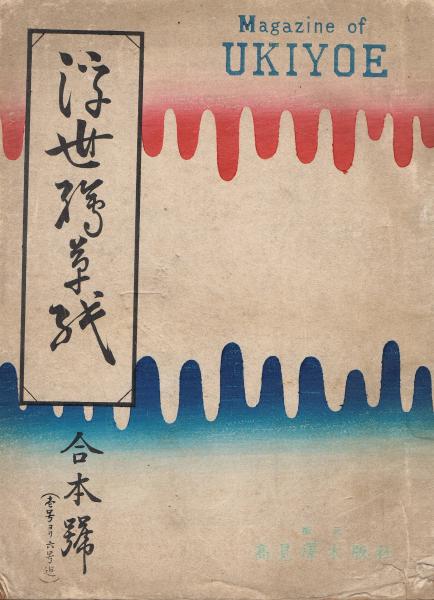 Magazine of
UKIYOE
浮世繪草紙
合本號
(壱号ヨリ六号迄)
版元
高見澤木版社